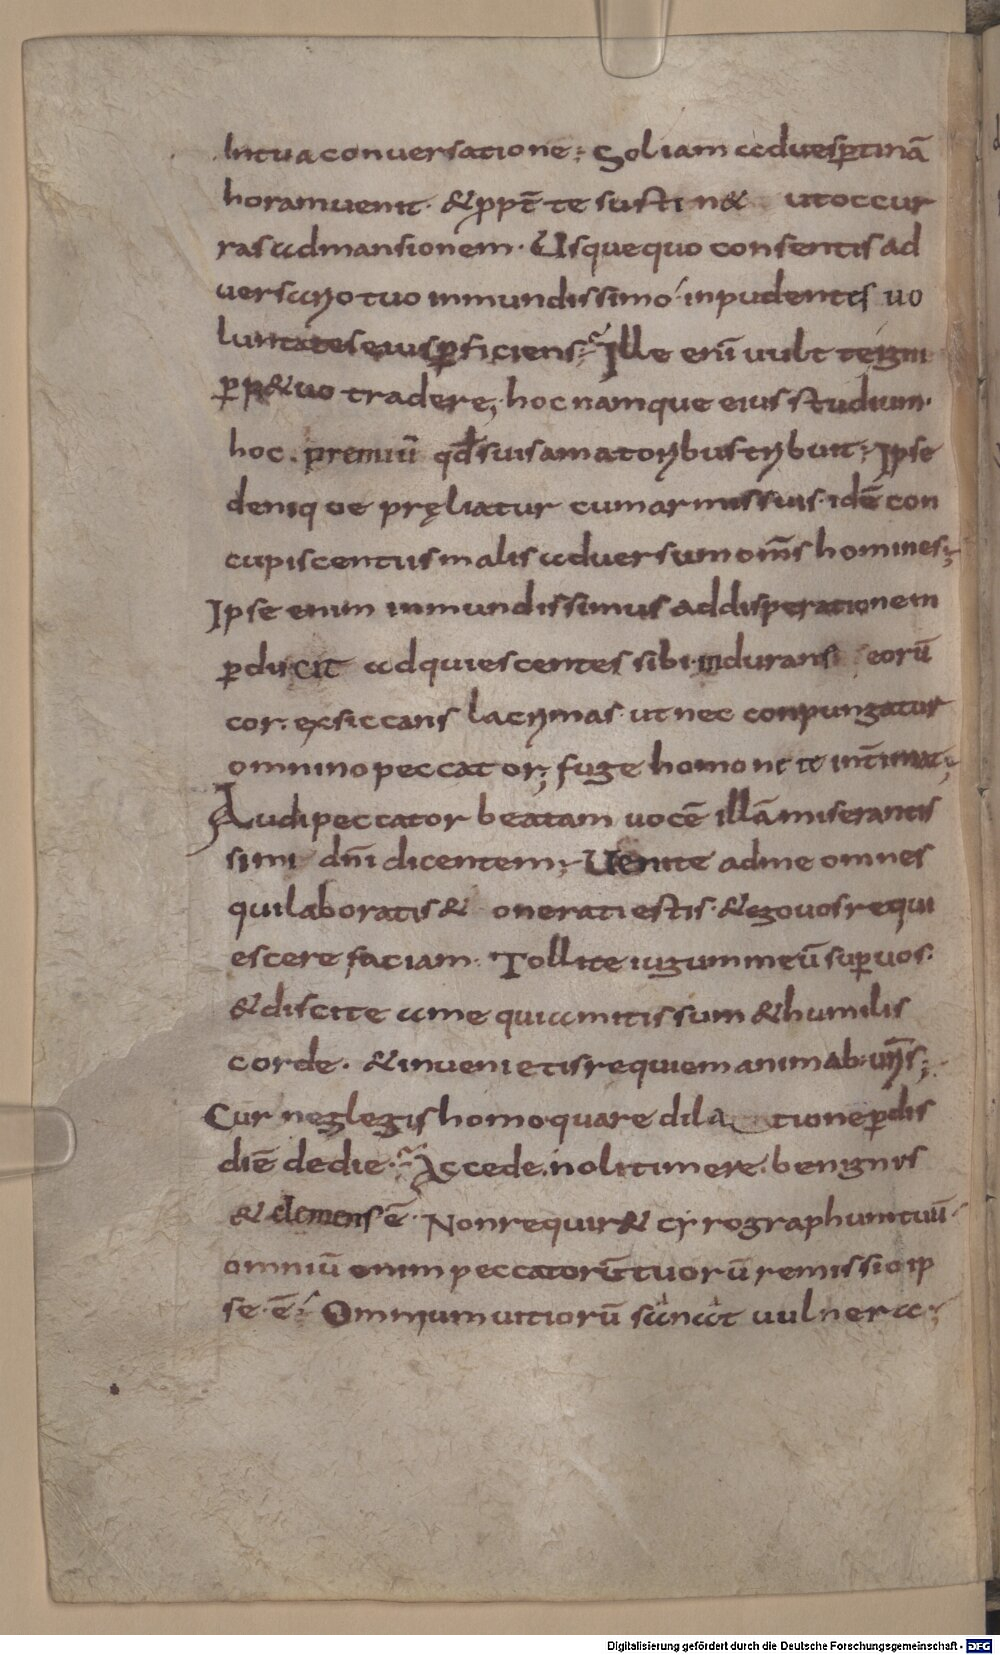 In tua conuersatione; Sol iam ad uesptinā
horam uenit· & ꝓpt̄ te sustin& ut occur
ras ad mansionem· Usquequo consentis ad
uersario tuo inmundissimo inpudentes uo
luntates eius ꝑficiens; Ille eni uult te igni
ꝑp&uo tradere; hoc namque eius studium·
hoc premiū qđ suis amatoribus tribuit; Ipse
deniq ue pręliatur cum armis suis· idē con
cupiscentiis malis aduersum oms̄ homines;
Ipse enim inmundissimus ad disperationem
ꝑducit adquiescentes sibi· indurans eorū
cor· exsiccans lacrimas· ut nec conpungatur
omnino peccator; fuge homo ne te int̄imat;
Audi peccator beatam uocē illā miserantis
simi dn̄i dicentem; Uenite ad me omnes
qui laboratis & onerati estis· & ego uos requi
escere faciam· Tollite iugum meū suꝑ uos·
& discite a me quia mitis sum & humilis
corde· & inuenietis requiem animab· urīs;
Cur neglegis homo quare dila tione ꝑdis
diē de die· Accede· noli timere· benignus
& clemens ē· Non requir& cyrographum tuū·
omniū enim peccatorū tuorū remissio ip
se· ē· Omnium uitiorū sanat uulnera·
Digitalisierung gefördert durch die Deutsche Forschungsgemeinschaft - DFG